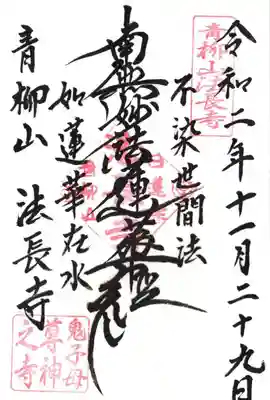 令和二年十一月二十九日
青柳山法長寺
不染世間法
南無妙法蓮華経
如蓮華在水
青柳山 法長寺
鬼子母
尊神
之寺